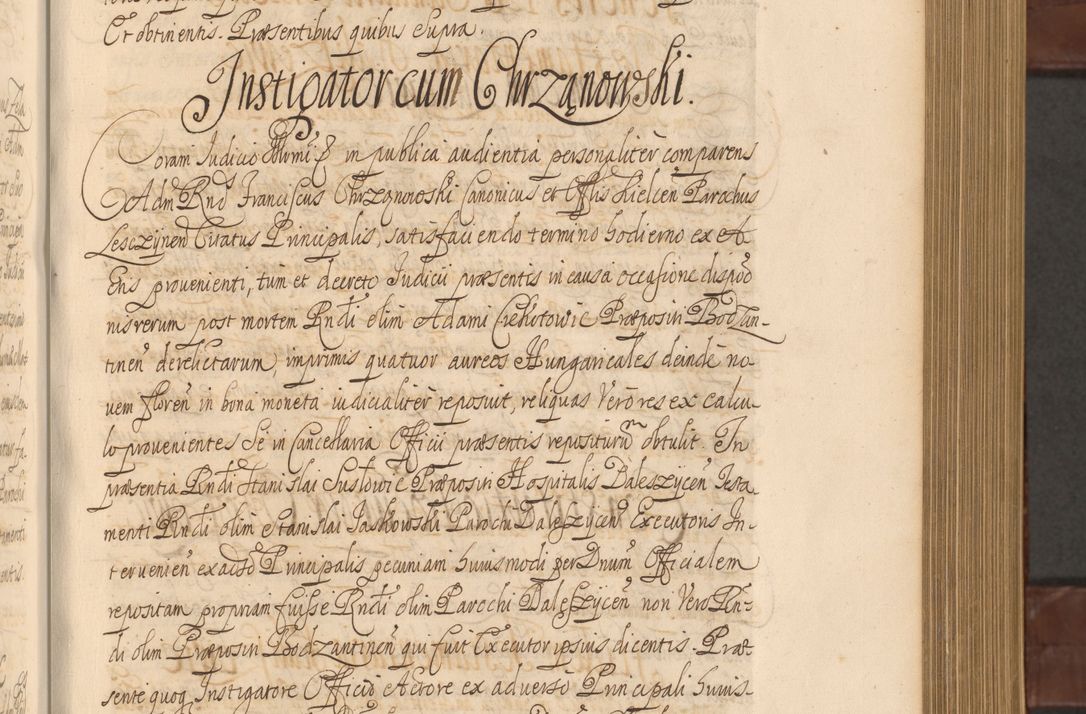 Et obtinentis. Præsentibus quibus supra.
Instigator cum Chrząnowski.
Coram Judicio in publica audientia personalitèr comparens
Adm Rnd Franciscus Chrząnowski Canonicus et Offlis Kielcen Parochus
Lesczÿnen Citatus Principalis, satisfaciendo termino hodierno ex A
ctis prouenienti, tum et decreto Judicii præsentis in causa occasione dispo
nis rerum post mortem Rndi olim Adami Præposin Bodzan-
tinen derelictarum, inprimis quatuor aureos Hungaricales deindè no
uem floren in bona moneta iudicialitèr reposuit, reliquas Verò res ex calcu-
lo prouenientes Se in Cancellaria Officii præsentis repositurum obtulit. In
præsentia Rndi Stanislai Præposin Hospitalis Daleszÿcen Testa
menti Rndi olim Stanislai Jaskowski Parochi Daleszÿcen Executoris In-
teruenien ex acto Principalis pecuniam huiusmodi per Dnum Officialem
repositam propriam fuisse Rndi olim Parochi Daleszÿcen non Vero Rn-
di olim Præposin Bodzantinen qui fuit Executor ipsius dicentis. Præ
sente quoq Instigatore Officii Actore ex aduerso Principali huius-